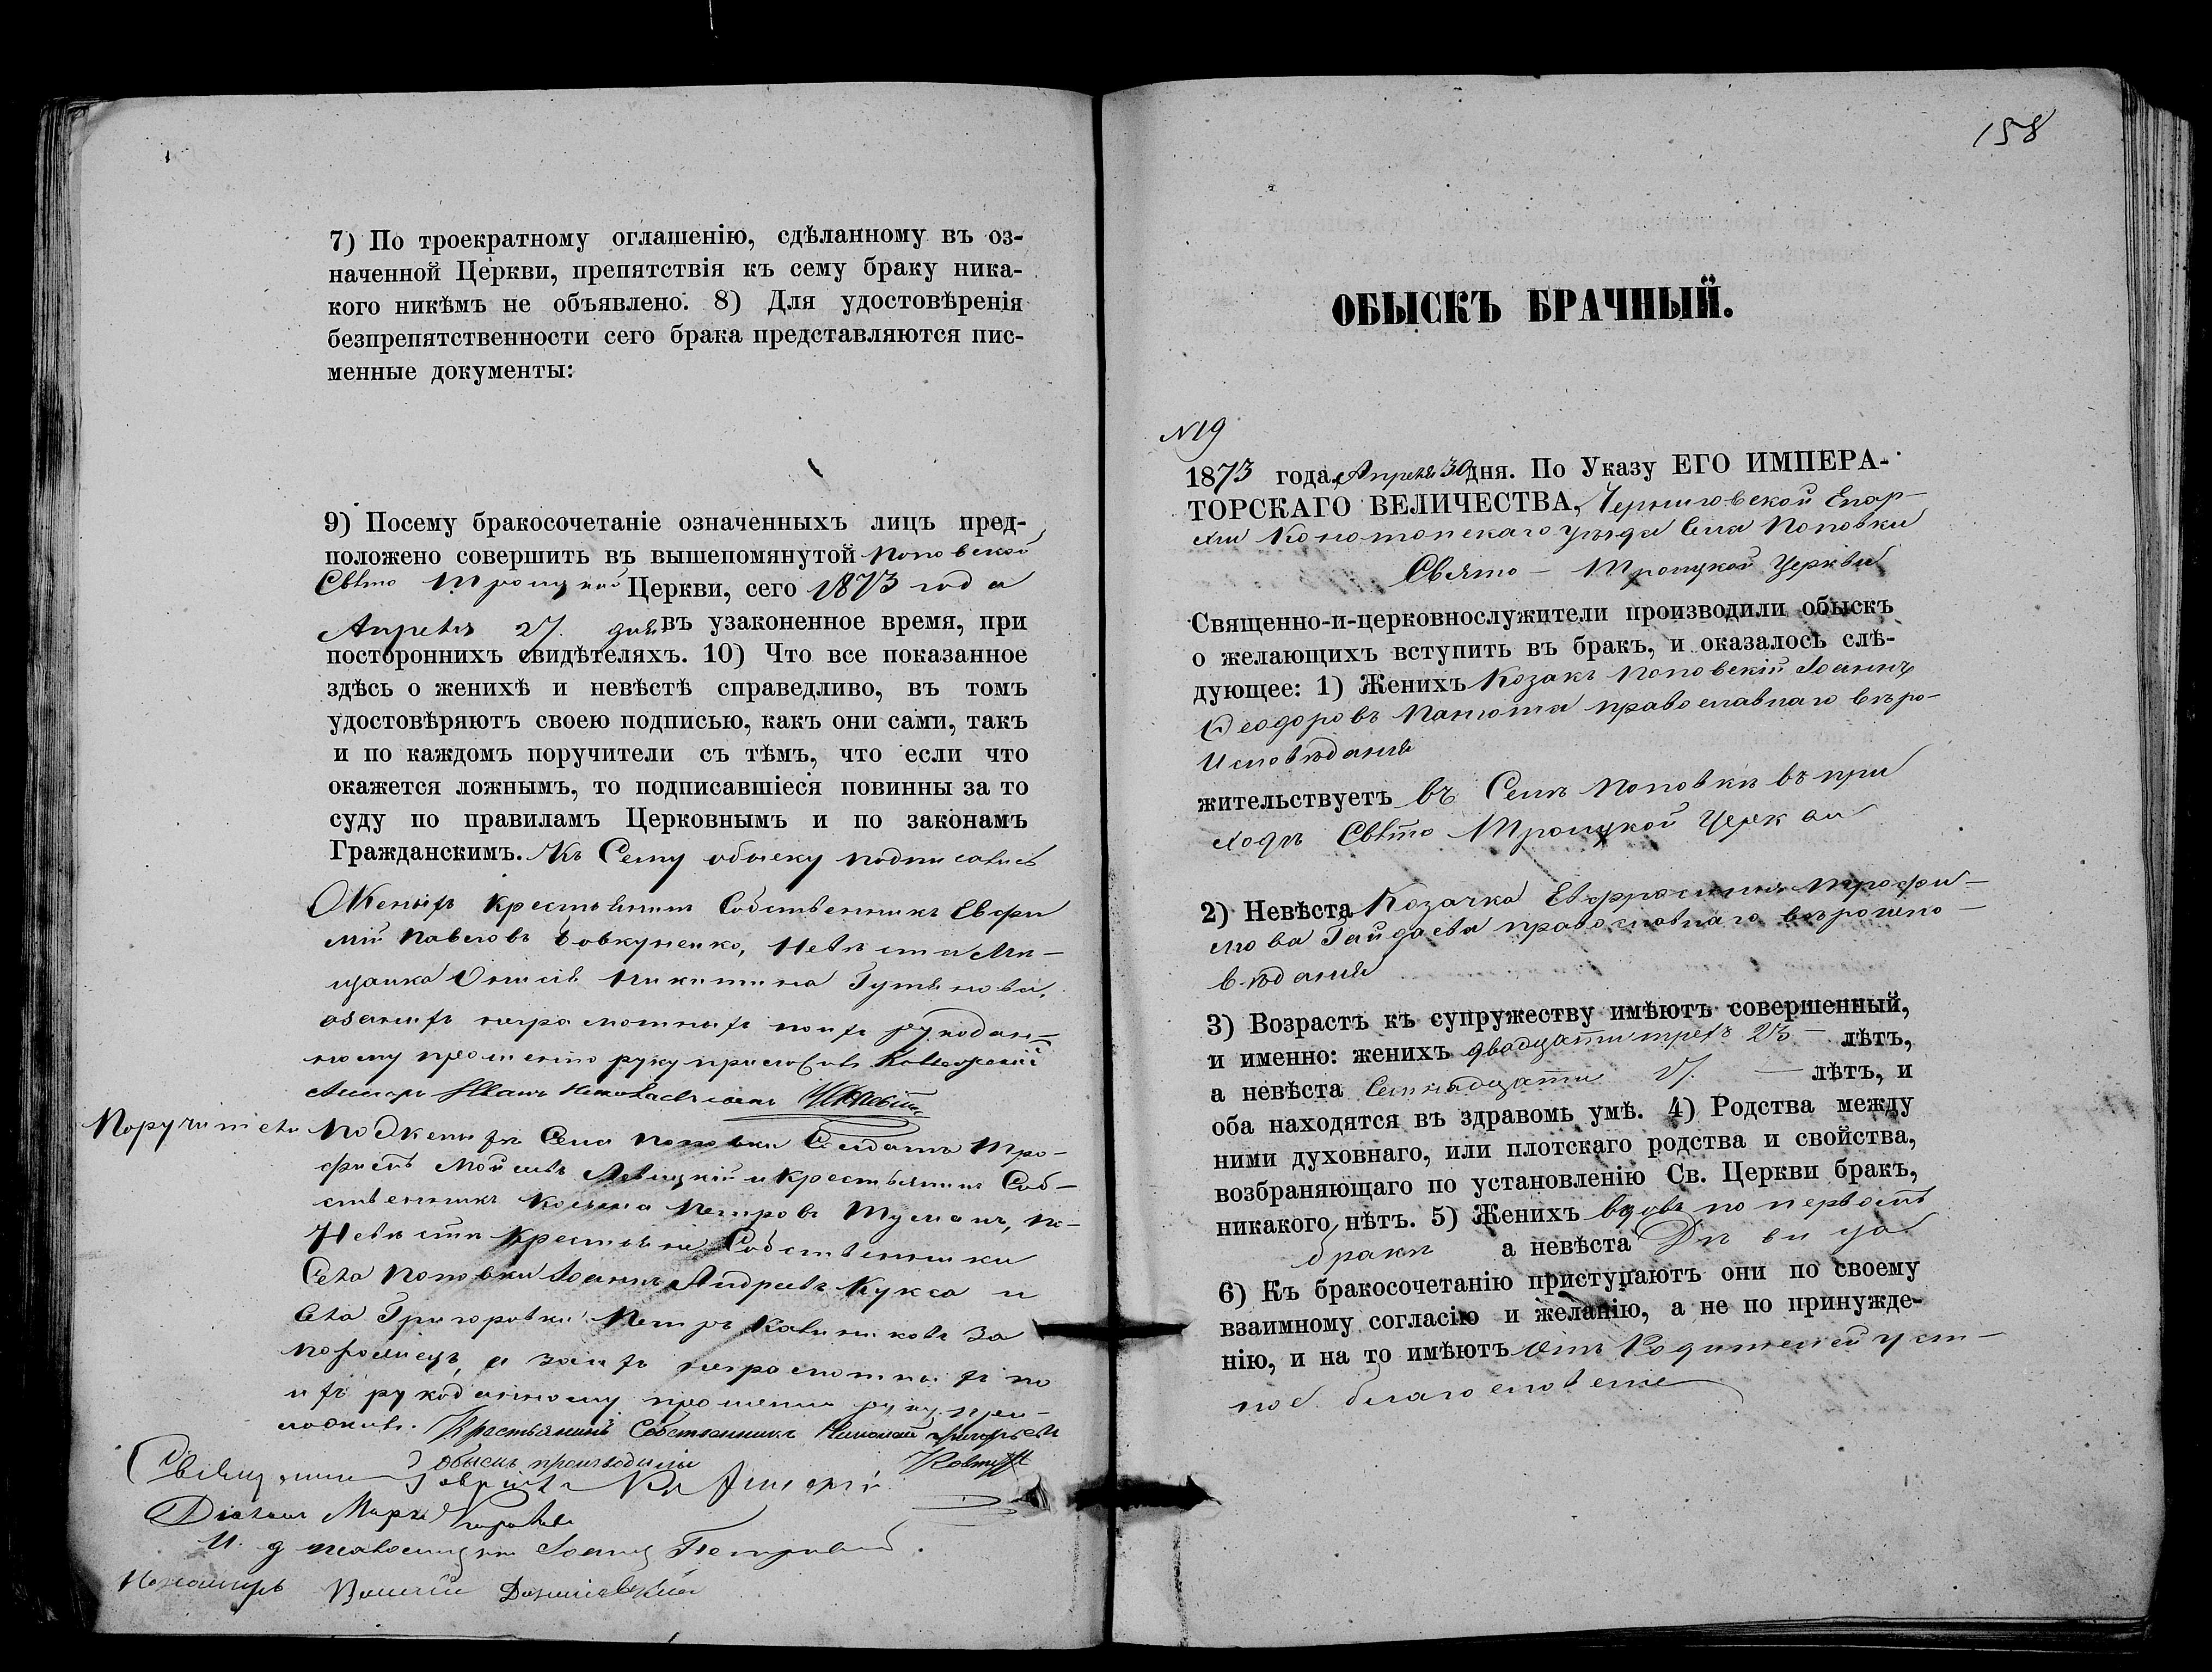 7) По троекратному оглашенію, сдѣланному въ оз-
наченной Церкви, препятствія къ сему браку ника-
кого никѣмъ не объявлено. 8) Для удостовѣренія
безпрепятственности сего брака представляются пис-
менные документы:
9) Посему бракосочетаніе означенныхъ лицъ пред-
положено совершить въ вышепомянутой Поповской
Свято Троицкой Церкви, сего 1873 года
Апреля 27. дня въ узаконенное время, при
постороннихъ свидѣтеляхъ. 10) Что все показанное
здѣсь о женихѣ и невѣстѣ справедливо, въ томъ
удостовѣряютъ своею подписью, какъ они сами, такъ
и по каждомъ поручители съ тѣмъ, что если что
окажется ложнымъ, то подписавшіеся повинны за то
суду по правиламъ Церковнымъ и по законамъ
Гражданскимъ. Къ Сему обыску подписались
Женихъ Крестьянинъ Собственникъ Евфи
мій Павловъ Невѣста Мѣ-
щанка Никитина
неграмотныхъ по ихъ рукодан-
ному прошенію руку приложилъ
Иванъ
Поручители По Женихѣ Села Поповки Солдатъ Тро-
фимъ Левицкій и Крестьянинъ Соб-
ственникъ Косьма Петровъ Туманъ, По
Невѣстѣ Крестьяне Собственники
Села Поповки Іоаннъ Андреевъ Кукса и
Села Григоровки Петръ За
а за ихъ неграмотныхъ по
ихъ рукоданному прошенію руку при-
ложилъ. Крестьянинъ Собственникъ Николай Григорьевъ
Обыскъ производили
Священникъ
Діаконъ Маркъ
И. д псаломщика Іоаннъ
Пономарь
158
ОБЫСКЪ БРАЧНЫЙ.
N 19
1873 года, Апреля 30 дня. По Указу ЕГО ИМПЕРА-
ТОРСКАГО ВЕЛИЧЕСТВА, Черниговской Епар-
хіи Конотопскаго уѣзда Села Поповки
Свято-Троицкой Церкви
Священно-и-церковнослужители производили обыскъ
о желающихъ вступить въ бракъ, и оказалось слѣ-
дующее: 1) Женихъ Козакъ Поповскій Іоаннъ
Ѳеодоровъ Панюта православнаго вѣро-
исповѣданія
жительствуетъ въ Селѣ Поповкѣ въ при
ходѣ Свято Троицкой Церкви
2) Невѣста Козачка Евфросинія Трофи-
мова Гайдаева православнаго вѣроиспо-
вѣданія
3) Возрастъ къ супружеству имѣютъ совершенный,
и именно: женихъ двадцати трехъ 23 - лѣтъ,
а невѣста Семнадцати 17. - лѣтъ, и
оба находятся въ здравомъ умѣ. 4) Родства между
ними духовнаго, или плотскаго родства и свойства,
возбраняющаго по установленію Св. Церкви бракъ,
никакого нѣтъ. 5) Женихъ вдовъ по первомъ
бракѣ а невѣста Дѣвица
6) Къ бракосочетанію приступаютъ они по своему
взаимному согласію и желанію, а не по принужде-
нію, и на то имѣютъ отъ Родителей уст-
ное благословеніе